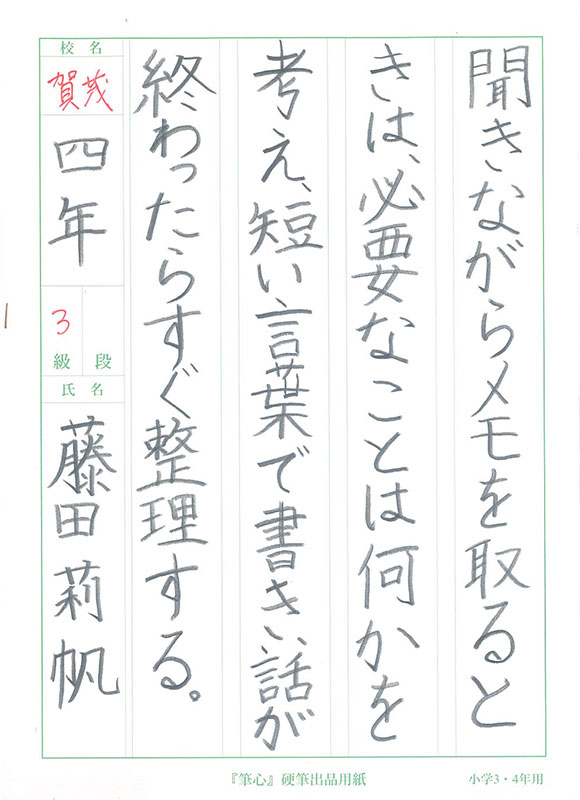 聞きながらメモを取ると
きは、必要なことは何かを
考え、短い言葉で書き、話が
終わったらすぐ整理する。
校名
賀茂
四年
3
級 段
氏名
藤田莉帆
『筆心』硬筆出品用紙
小学3・4年用